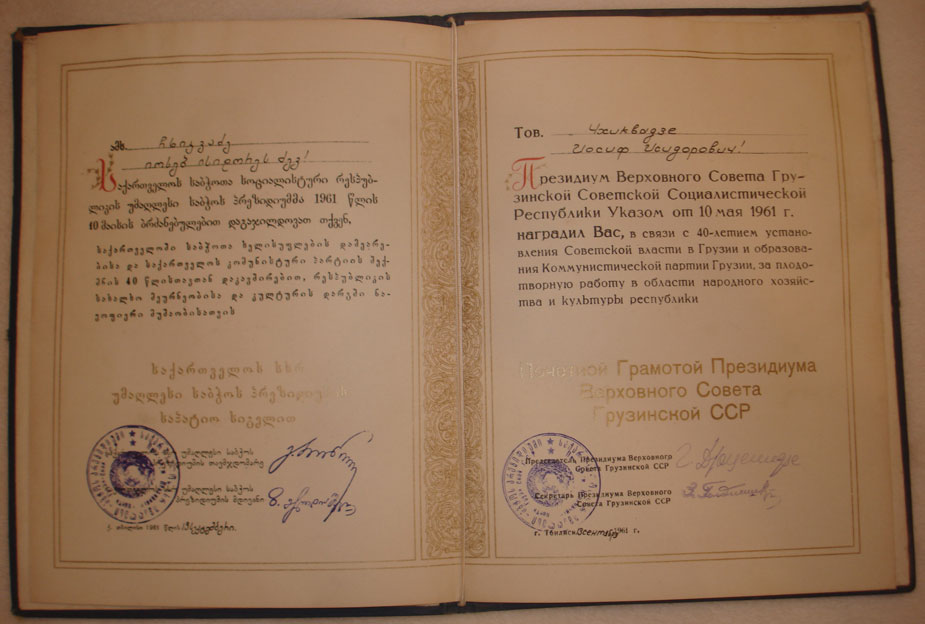 ამხ. ჩხიკვაძე
იოსებ ისიდორეს ძევ!
საქართველოს საბჭოთა სოციალისტური რესპუბ-
ლიკის უმაღლესი საბჭოს პრეზიდიუმმა 1961 წლის
10 მაისის ბრძანებულებით დაგაჯილდოვათ თქვენ,
საქართველოში საბჭოთა ხელისუფლების დამყარე-
ბისა და საქართველოს კომუნისტური პარტიის შექ-
მნის 40 წლისთავთან დაკავშირებით, რესპუბლიკის
სახალხო მეურნეობისა და კულტურის დარგში ნა-
ყოფიერი მუშაობისათვის
საქართველოს სსრ
უმაღლესი საბჭოს პრეზიდიუმის
საპატიო სიგელით
უმაღლესი საბჭოს
პრეზიდიუმის თავმჯდომარე
უმაღლესი საბჭოს
პრეზიდიუმის მდივანი
ქ. თბილისი 1961 წლის სექტემბერი
Тов. Чхиквадзе
Иосиф Исидорович!
Президиум Верховного Совета Гру-
зинской Советской Социалистической
Республики Указом от 10 мая 1961 г.
наградил Вас, в связи с 40-летием установ-
ления Советской власти в Грузии и образова-
ния Коммунистической партии Грузии, за плодо-
творную работу в области народного хозяйс-
тва и культуры республики
Почетной Грамотой Президиума
Верховного Совета
Грузинской ССР
Председатель Президиума Верховного
Совета Грузинской ССР
Секретарь Президиума Верховного
Совета Грузинской ССР
г. Тбилиси 1961 г.